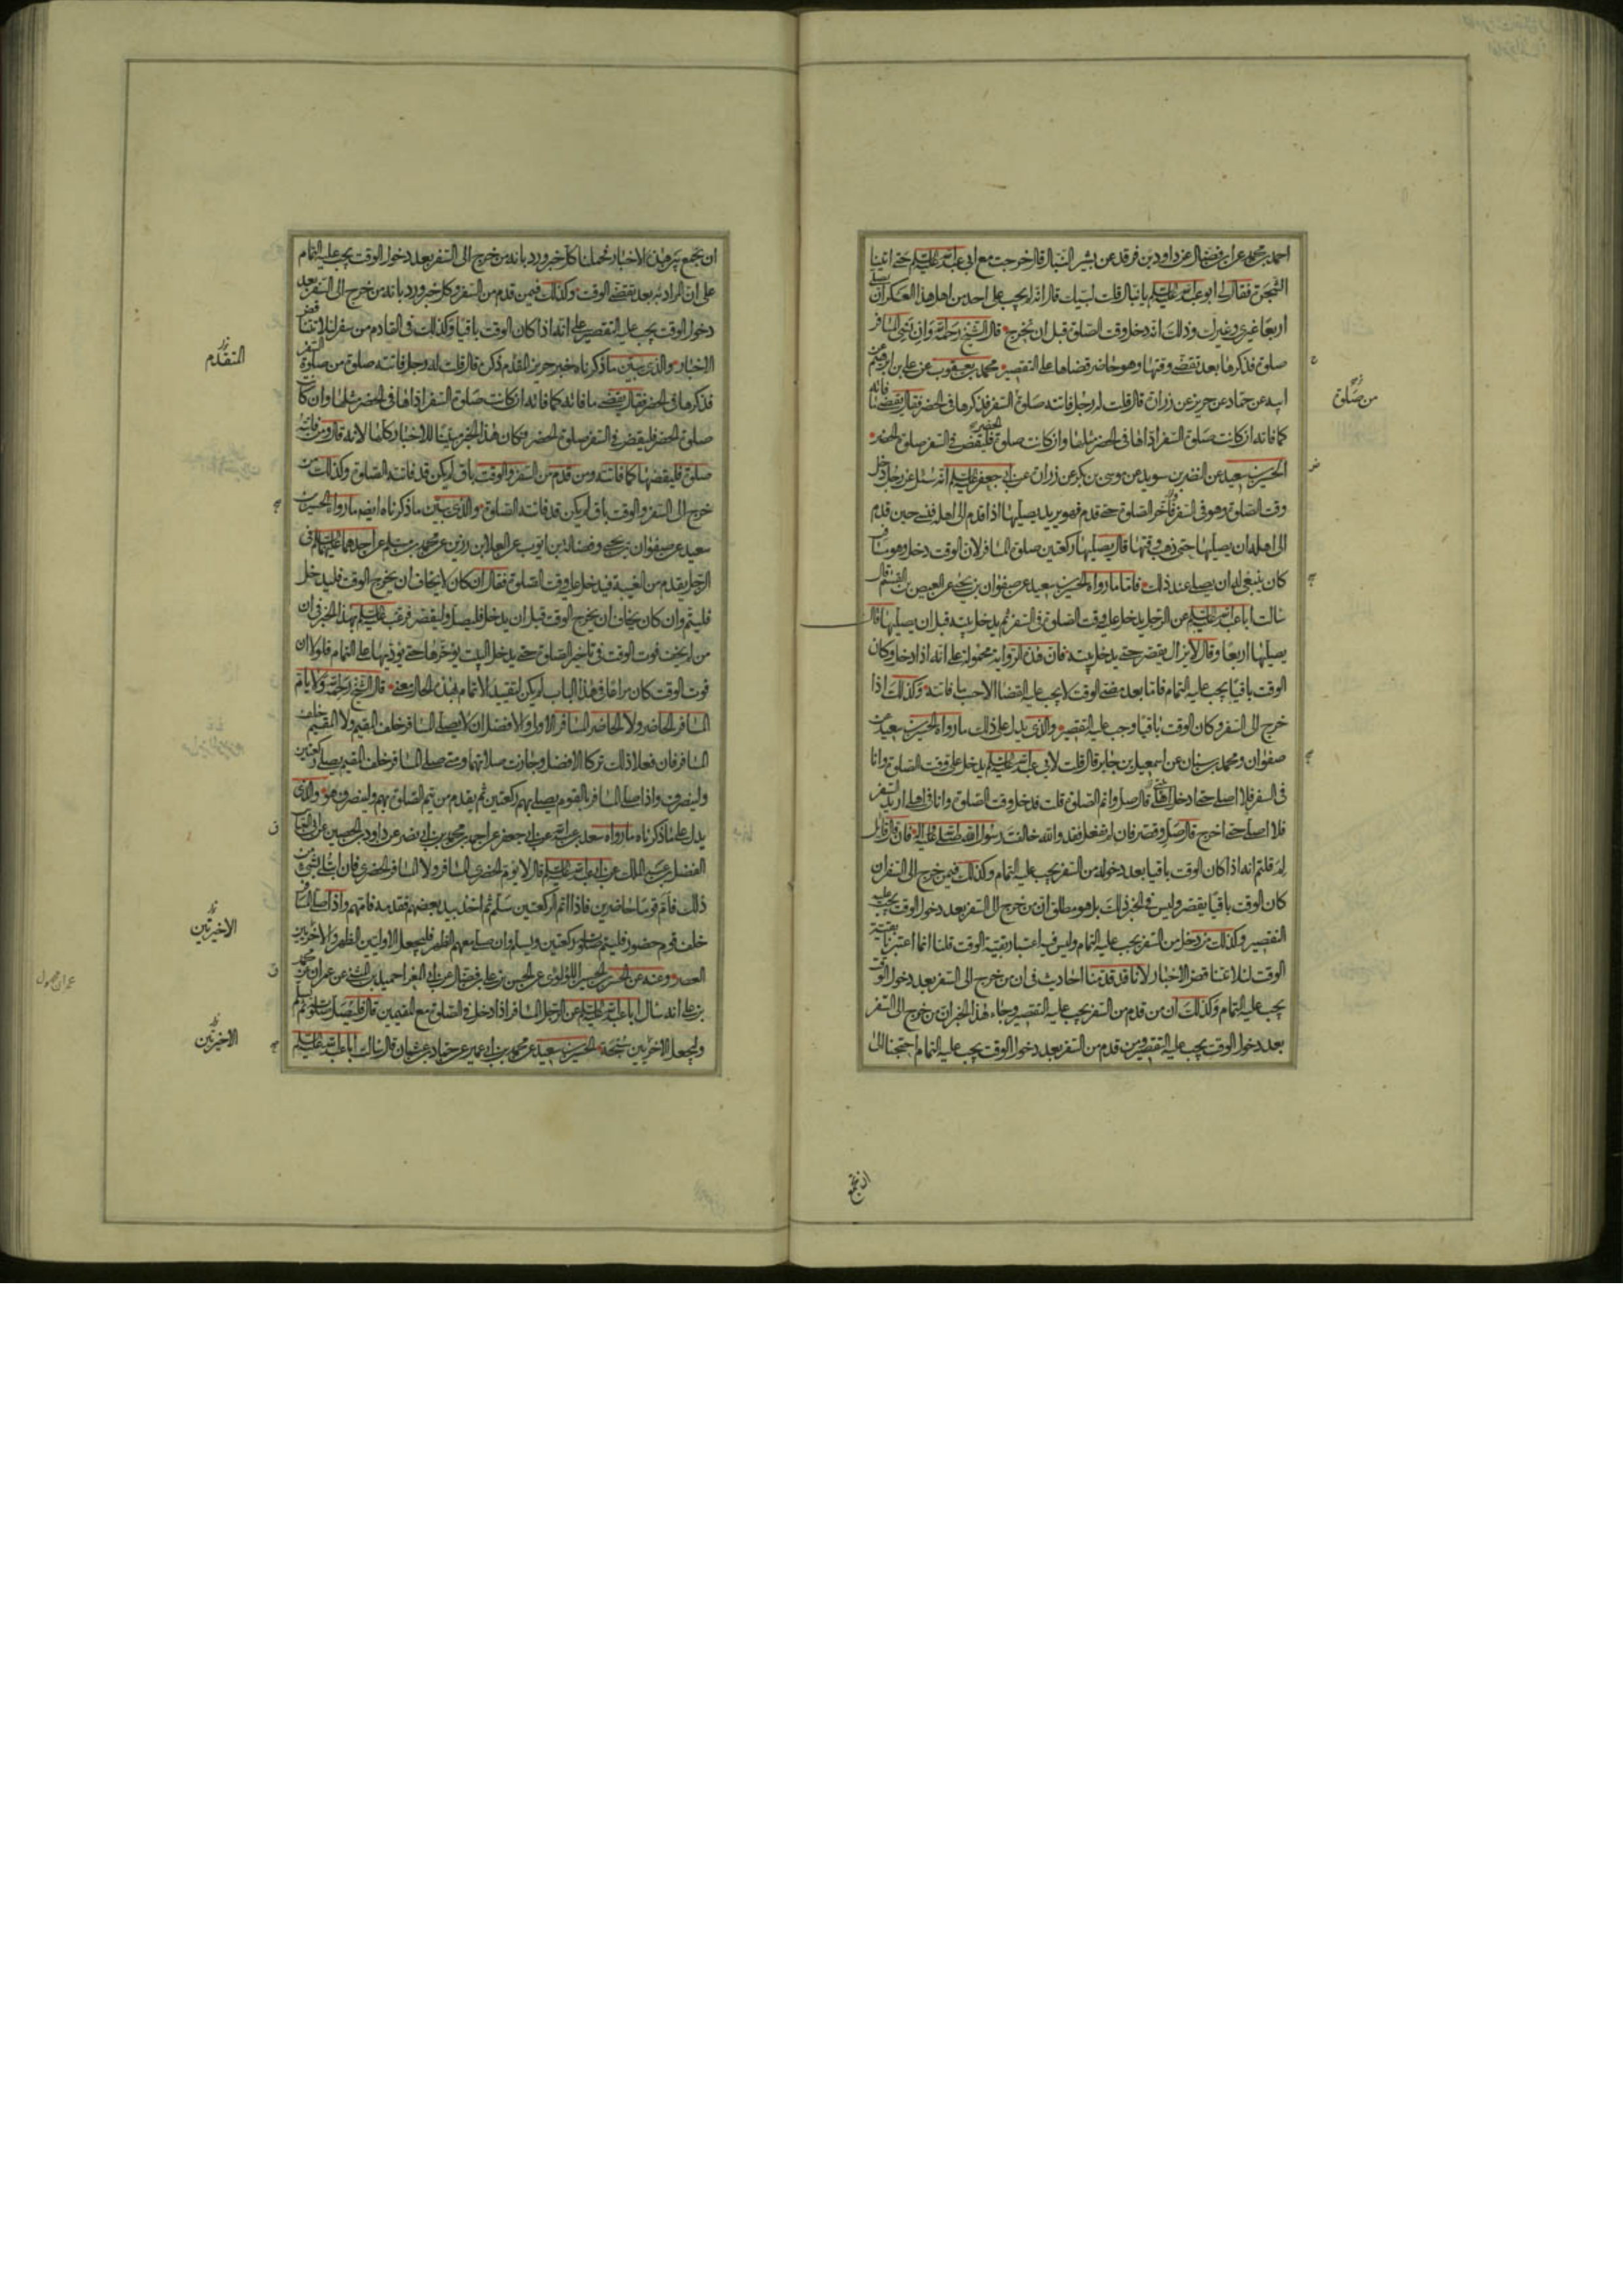 احمد بن محمد عن ابن فضال عن داود بن فرقد عن بشير النبال قال خرجت مع ابي عبد الله عليه السلم حتى اتينا
الشجرة فقال لى ابو عبد الله عليه السلم يا نبال قلت لبيك قال انه لم يجب على احد من اهل هذا العسكر ان يصلى
اربعا غيرى وغيرك وذلك انه دخل وقت الصلوة قبل ان نخرج قال الشيخ رحمه الله وان نسى المسافر
صلوة فذكرها بعد تقضى وقتها وهو حاضر قضاها على التقصير محمد بن يعقوب عن على بن ابرهيم عن
ابيه عن حماد عن حريز عن زرارة قال قلت له رجل فاتته صلوة السفر فذكرها فى الحضر فقال يقضى ما فاته
من صلوة
كما فاته ان كانت صلوة السفر اداها فى الحضر مثلها وان كانت صلوة الحضر فليقض فى السفر صلوة الحضر
الحسين بن سعيد عن النضر بن سويد عن موسى بن بكر عن زرارة عن ابى جعفر عليه السلم انه سئل عن رجل دخل
وقت الصلوة وهو فى السفر فاخر الصلوة حتى قدم فهو يريد يصليها اذا قدم الى اهله فنسى حين قدم
الى اهله ان يصليها حتى ذهب وقتها قال يصليها ركعتين صلوة المسافر لان الوقت دخل وهو مسافر
كان ينبغى له ان يصلى عند ذلك فاما ما رواه الحسين بن سعيد عن صفوان بن يحيى عن العيص بن القسم قال
سالت ابا عبد الله عليه السلم عن الرجل يدخل عليه وقت الصلوة فى السفر ثم يدخل بيته قبل ان يصليها قال
يصليها اربعا وقال لا يزال يقصر حتى يدخل بيته فان هذه الرواية محمولة على انه اذا دخل وكان
الوقت باقيا يجب عليه التمام فاما بعد مضى الوقت لا يجب عليه القضا الا حسب ما فاته وكذلك اذا
خرج الى السفر وكان الوقت باقيا وجب عليه التقصير والذى يدل على ذلك ما رواه الحسين بن سعيد عن
صفوان ومحمد بن سنان عن اسمعيل بن جابر قال قلت لابى عبد الله عليه السلم يدخل على وقت الصلوة وانا
فى السفر فلا اصلى حتى ادخل اهلى قال صل واتم الصلوة قلت فدخل وقت الصلوة وانا فى اهلى اريد السفر
فلا اصلى حتى اخرج قال صل وقصر فان لم تفعل فقد والله خالفت رسول الله صلى الله عليه واله فان قال قائل
لم قلتم انه اذا كان الوقت باقيا بعد دخوله من السفر يجب عليه التمام وكذلك فيمن خرج الى السفر ان
كان الوقت باقيا يقصر وليس فى الخبر ذلك بل هو مطلق ان من خرج الى السفر بعد دخول الوقت يجب عليه
التقصير وكذلك من دخل من السفر يجب عليه التمام وليس فيه اعتبار بقية الوقت قلنا انما اعتبرنا بقية
الوقت لئلا تتناقض الاخبار لانا قد قدمنا احاديث فى ان من خرج الى السفر بعد دخول الوقت
يجب عليه التمام وكذلك ان من قدم من السفر يجب عليه التقصير وجاء هذا الخبر ان من خرج الى السفر
بعد دخول الوقت يجب عليه التقصير ومن قدم من السفر بعد دخول الوقت يجب عليه التمام احتجنا الى
ان نجمع
ان نجمع بين هذه الاخبار فحملنا كل خبر ورد بانه من خرج الى السفر بعد دخول الوقت يجب عليه التمام
على ان المراد به بعد تقضى الوقت وكذلك فيمن قدم من السفر وكل خبر ورد بانه من خرج الى السفر بعد
دخول الوقت يجب عليه التقصير على انه اذا كان الوقت باقيا وكذلك فى القادم من سفر لئلا تتناقض
الاخبار والذى يبين ما ذكرناه خبر حريز المقدم ذكره قال قلت له رجل فاتته صلوة من صلوة السفر
المتقدم
فذكرها فى الحضر فقال يقضى ما فاته كما فاته ان كانت صلوة السفر اداها فى الحضر مثلها وان كانت
صلوة الحضر فليقض فى السفر صلوة الحضر وكان هذا الخبر مبينا للاخبار كلها لانه قال ومن فاتته
صلوة فليقضها كما فاتته ومن قدم من السفر والوقت باق لم يكن قد فاتته الصلوة وكذلك من
خرج الى السفر والوقت باق لم يكن قد فاتته الصلوة والذى يبين ما ذكرناه ايضا ما رواه الحسين بن
سعيد عن صفوان بن يحيى وفضالة بن ايوب عن العلا بن رزين عن محمد بن مسلم عن احدهما عليهما السلم فى
الرجل يقدم من الغيبة فيدخل عليه وقت الصلوة فقال ان كان لا يخاف ان يخرج الوقت فليدخل
فليتم وان كان يخاف ان يخرج الوقت قبل ان يدخل فليصل وليقصر فرغب عليه السلم بهذا الخبر فى ان
من لم يخف فوت الوقت فى تاخير الصلوة حتى يدخل البيت يؤخرها حتى يؤديها على التمام فلولا ان
فوت الوقت كان مراعا فى هذا الباب لم يكن لتقييد الاتمام بهذه الحال معنى قال الشيخ رحمه الله ولا ياتم
المسافر الحاضر ولا الحاضر المسافر الاولى والافضل ان لا يصلى المسافر خلف المقيم ولا المقيم خلف
المسافر فان فعلا ذلك تركا الافضل وجازت صلاتهما ومتى صلى المسافر خلف المقيم يصلى ركعتين
ولينصرف واذا صلى المسافر بالقوم يصلى بهم ركعتين ثم يقدم من يتم الصلوة بهم ولينصرف هو والذى
يدل على ما ذكرناه ما رواه سعد بن عبد الله عن ابى جعفر عن احمد بن محمد بن ابى نصر عن داود بن الحصين عن ابى العباس
الفضل بن عبد الملك عن ابى عبد الله عليه السلم قال لا يؤم الحضرى المسافر ولا المسافر الحضرى فان ابتلى بشىء من
ذلك فام قوما حاضرين فاذا اتم الركعتين سلم ثم اخذ بيد بعضهم فقدمه فامهم واذا صلى المسافر
خلف قوم حضور فليتم صلوته ركعتين ويسلم وان صلى معهم الظهر فليجعل الاوليين الظهر والاخرتين
الاخيرتين
العصر وعنه عن الحسن بن الحسين اللؤلؤى عن الحسن بن على بن فضال عن ابى المغرا حميد بن المثنى عن عمران عن محمد
بن على انه سال ابا عبد الله عليه السلم عن الرجل المسافر اذا دخل فى الصلوة مع المقيمين قال فليصل صلوته ثم يسلم
وليجعل الاخرتين سبحة الحسين بن سعيد عن محمد بن ابى عمير عن حماد بن عثمان قال سالت ابا عبد الله عليه السلم
الاخيرتين